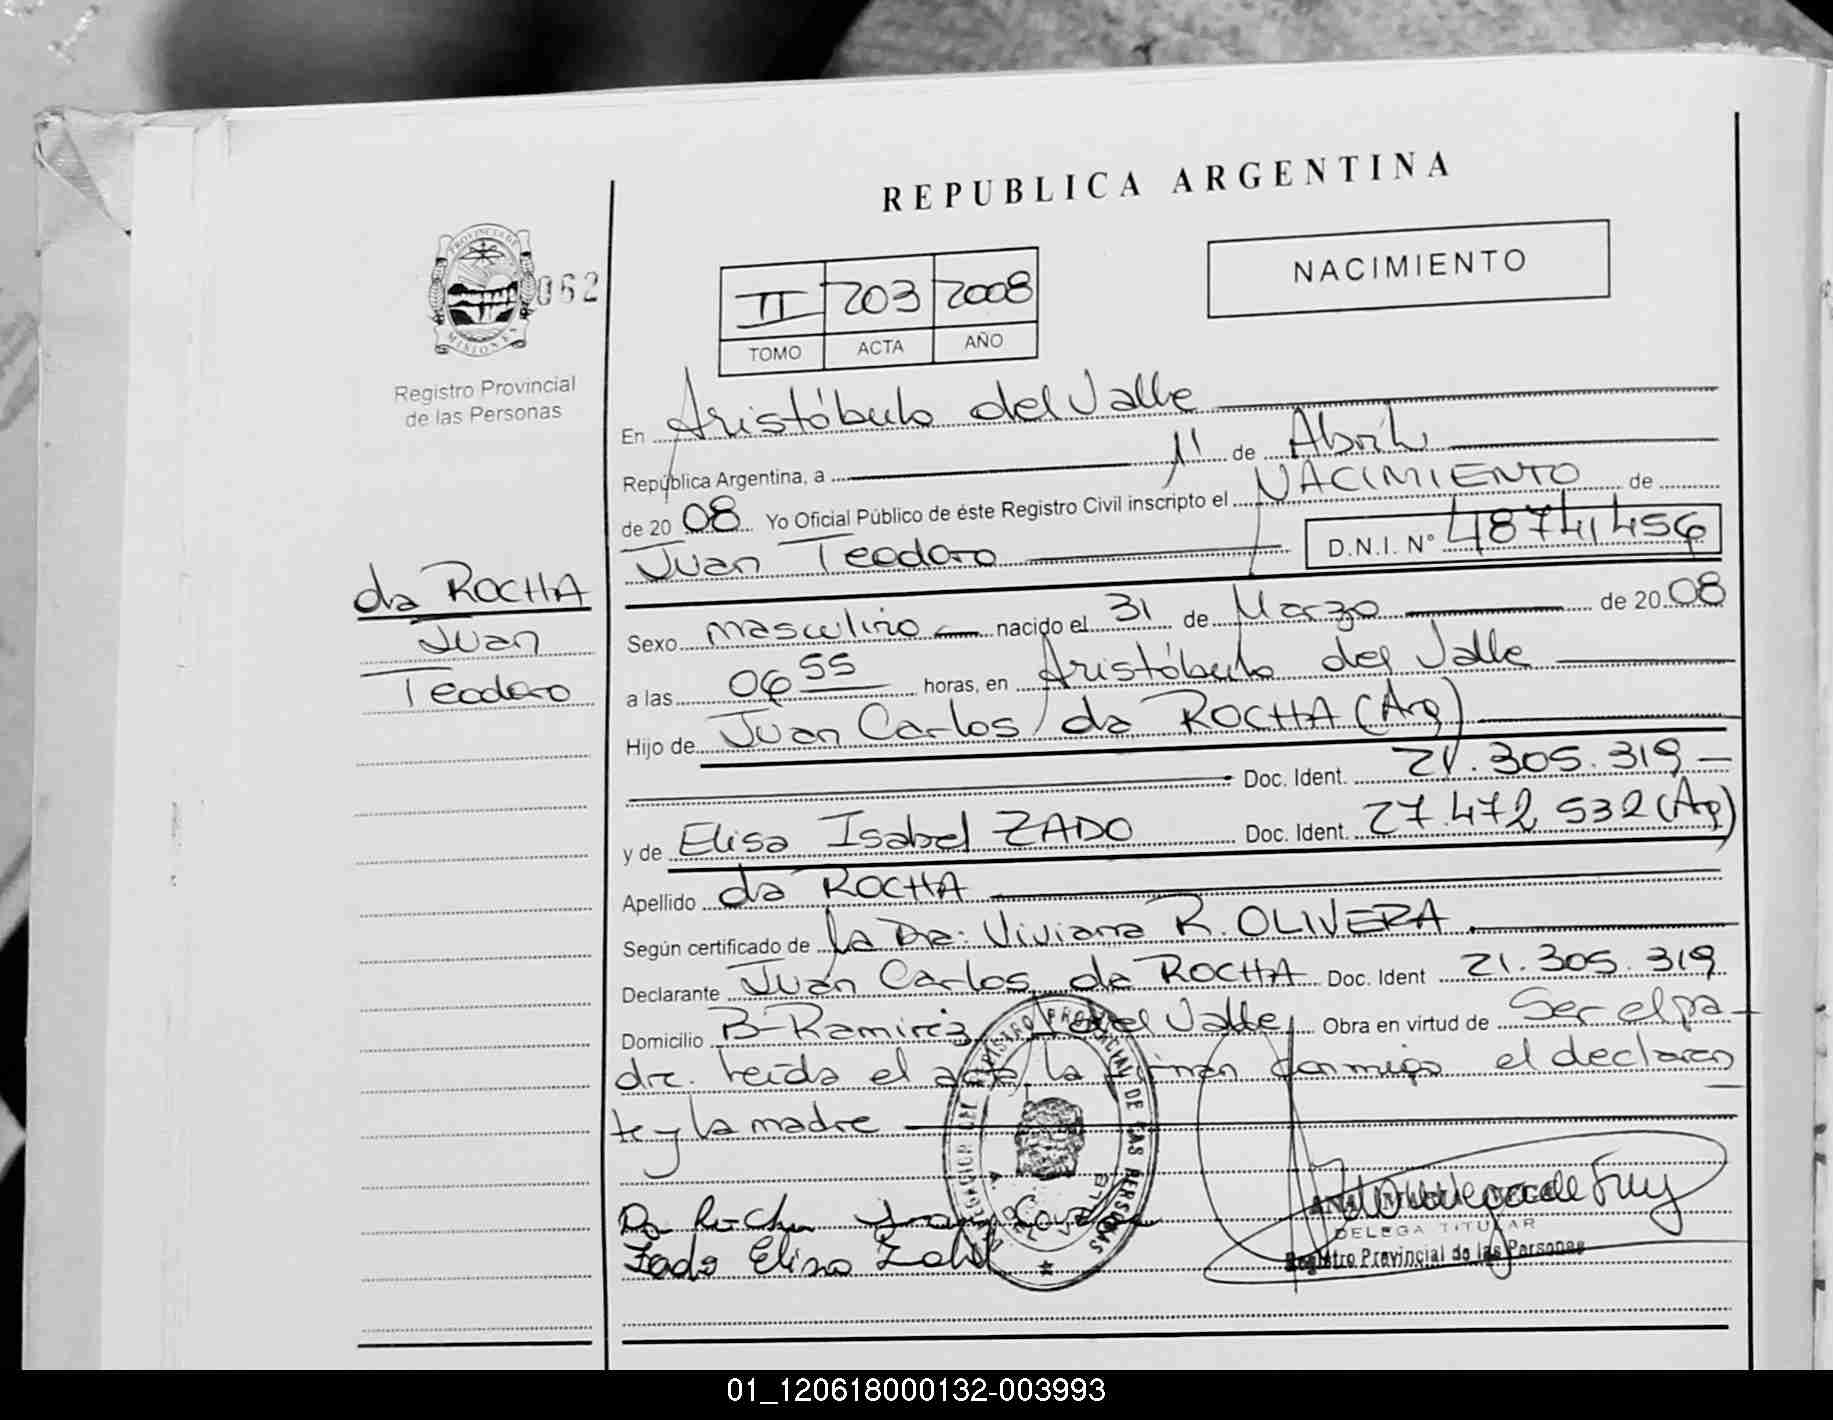 REPUBLICA ARGENTINA
NACIMIENTO
PROVINCIA DE
MISIONES
062
Registro Provincial
de las Personas
II 203 2008
TOMO ACTA AÑO
En Aristóbulo del Valle
República Argentina, a 11 de Abril
de 20 08 Yo Oficial Público de éste Registro Civil inscripto el NACIMIENTO de
Juan Teodoro D.N.I. N° 48741456
da ROCHA
Juan
Teodoro
Sexo masculino nacido el 31 de Marzo de 20 08
a las 06 55 horas, en Aristóbulo del Valle
Hijo de Juan Carlos da ROCHA (Arg)
Doc. Ident. 21.305.319
y de Elisa Isabel ZADO Doc. Ident. 27.472 532 (Arg)
Apellido da ROCHA
Según certificado de la Dra: Viviana R. OLIVERA
Declarante Juan Carlos da ROCHA Doc. Ident 21.305.319
Domicilio B-Ramirez del Valle Obra en virtud de Ser el pa-
dre. Leída el acta, la firman conmigo el declaran
te y la madre
DELEGACION DEL REGISTRO PROVINCIAL DE LAS PERSONAS
A. DEL VALLE
Da Rocha Juan Carlos
Zado Elisa
DELEGA TITULAR
Registro Provincial de las Personas
01_120618000132-003993